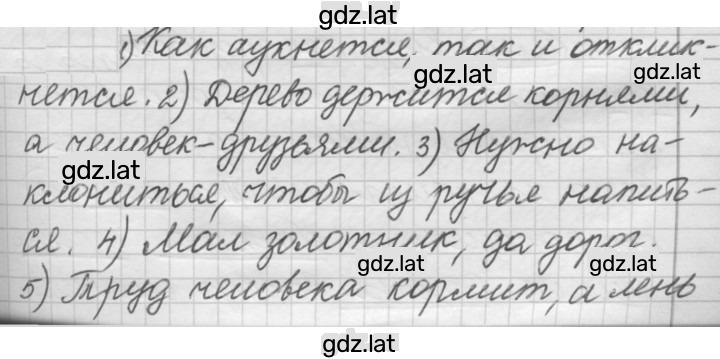 gdz.lat
1) Как аукнется, так и отклик-
gdz.lat gdz.lat
нется. 2) Дерево держится корнями,
а человек-друзьями. 3) Нужно на-
gdz.lat
клониться, чтобы из ручья напить-
ся. 4) Мал золотник, да дорог.
gdz.lat gdz.lat
5) Труд человека кормит, а лень
gdz.lat